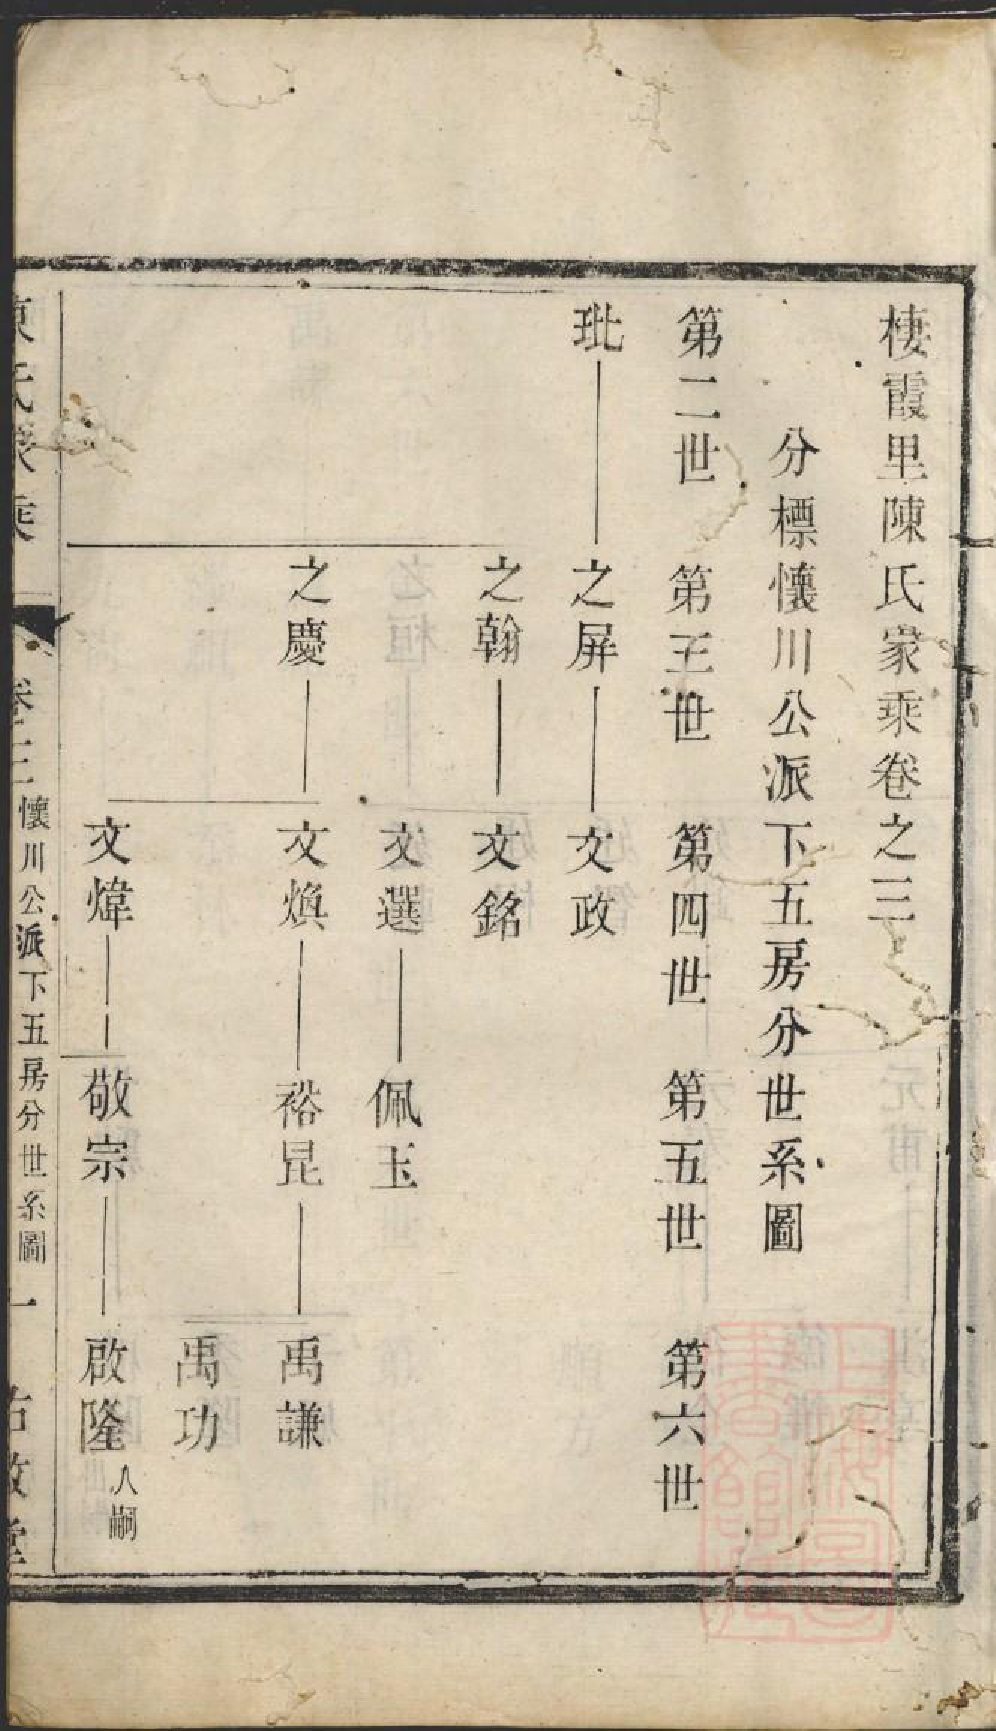 棲霞里陳氏家乘卷之三
分標懷川公派下五房分世系圖
第二世 第三世 第四世 第五世 第六世
玭 之屏 文政
之翰 文銘
文選 佩玉
之慶 文煥 裕昆 禹謙
禹功
文煒 敬宗 啟隆 入嗣
陳氏家乘 卷三 懷川公派下五房分世系圖 一